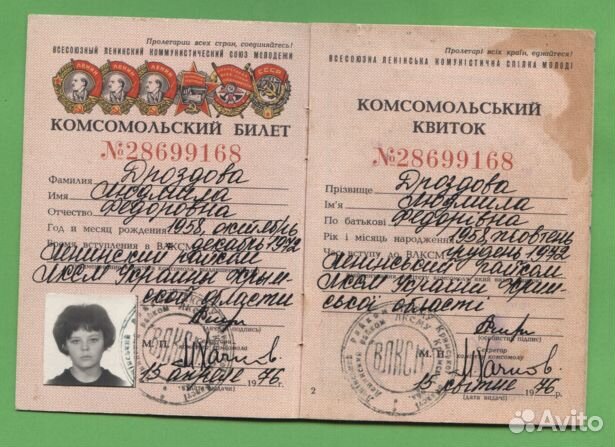 Пролетарии всех стран, соединяйтесь!
ВСЕСОЮЗНЫЙ ЛЕНИНСКИЙ КОММУНИСТИЧЕСКИЙ СОЮЗ МОЛОДЕЖИ
ЛЕНИН ЛЕНИН ЛЕНИН СССР
КОМСОМОЛЬСКИЙ БИЛЕТ
№28699168
Фамилия Дроздова
Имя Людмила
Отчество Федоровна
Год и месяц рождения 1958, октябрь
Время вступления в ВЛКСМ декабрь 1972
Ленинский райком
ЛКСМ Украины Крым-
ской области
(личная подпись)
М. П.
15 апреля 1976 г.
(дата выдачи)
ВЛКСМ
Пролетарі всіх країн, єднайтеся!
ВСЕСОЮЗНА ЛЕНІНСЬКА КОМУНІСТИЧНА СПІЛКА МОЛОДІ
КОМСОМОЛЬСЬКИЙ
КВИТОК
№28699168
Прізвище Дроздова
Ім'я Людмила
По батькові Федорівна
Рік і місяць народження 1958, жовтень
Час вступу до ВЛКСМ грудень 1972
Ленінський райком
ЛКСМ України Крим-
ської області
(особистий підпис)
М. П. Секретар
комітету комсомолу
15 квітня 1976 р.
(дата видачі)
ВЛКСМ
2
Avito